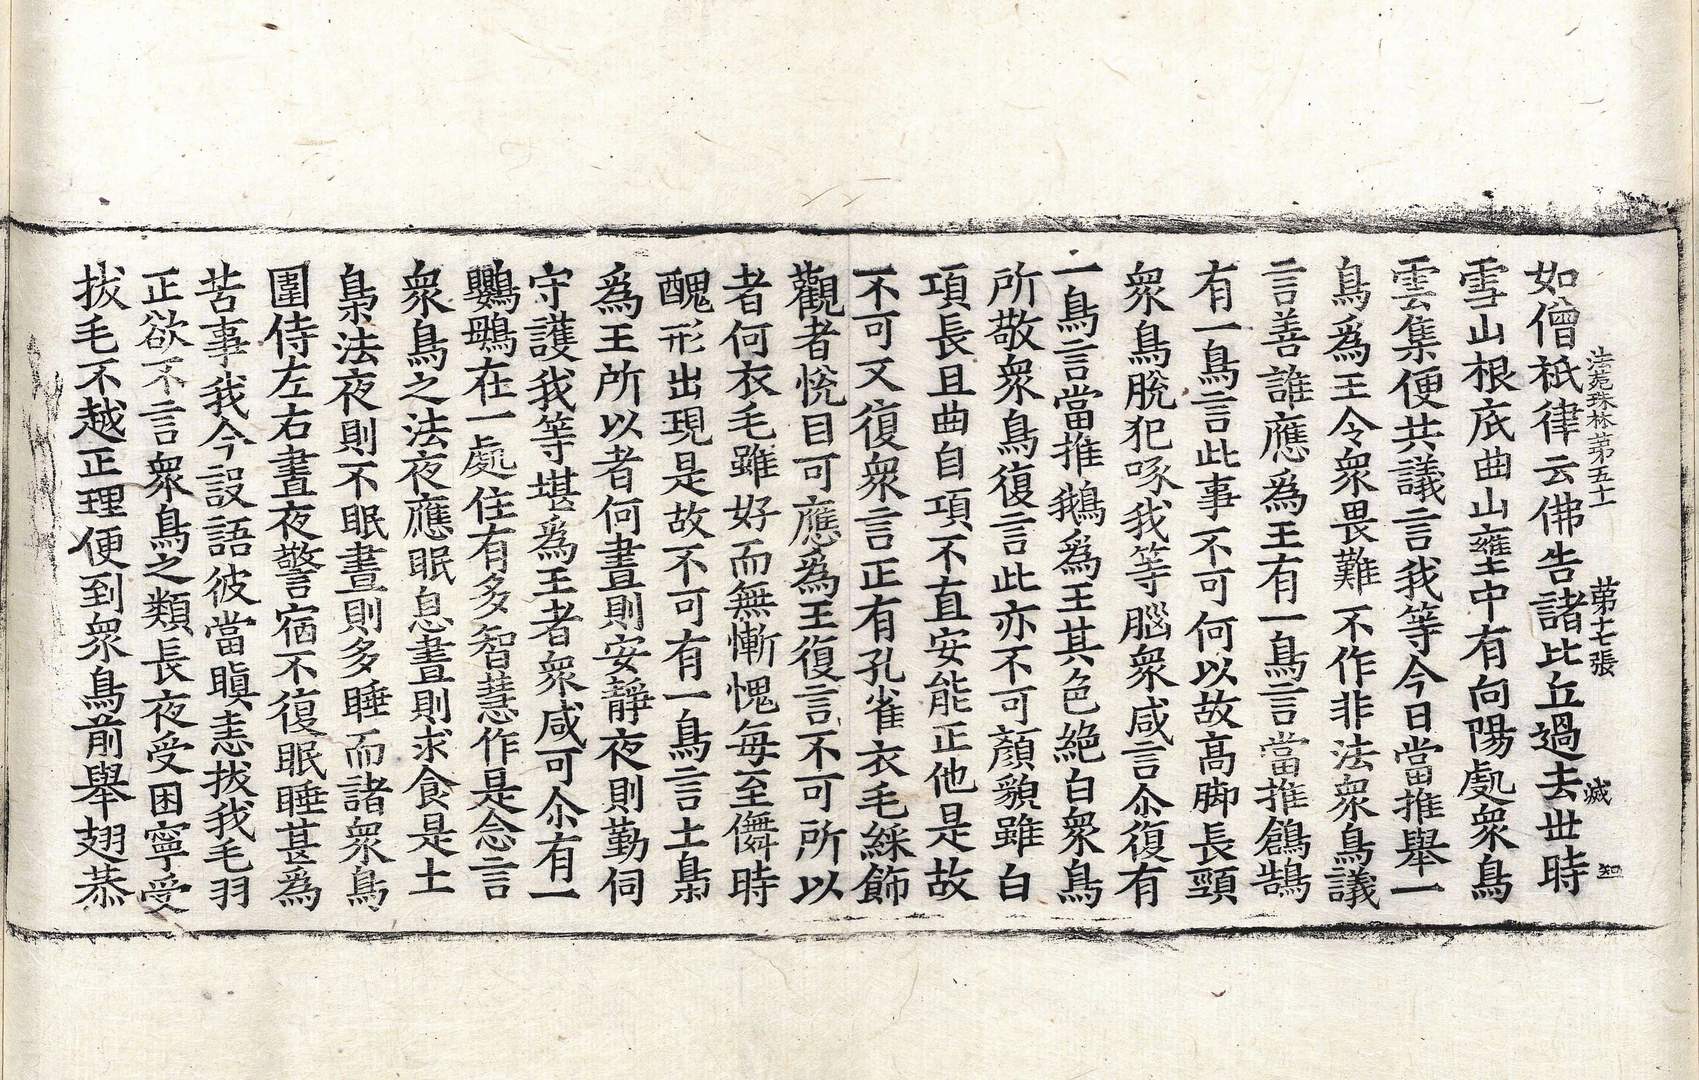 法苑珠林第五十 第十七張 滅 知
如僧祇律云佛告諸比丘過去世時
雪山根底曲山壅中有向陽處衆鳥
雲集便共議言我等今日當推舉一
鳥爲王令衆畏難不作非法衆鳥議
言善誰應爲王有一鳥言當推鶬鵠
有一鳥言此事不可何以故高脚長頸
衆鳥脫犯啄我等腦衆咸言尒復有
一鳥言當推鵝爲王其色絶白衆鳥
所敬衆鳥復言此亦不可顏貌雖白
項長且曲自項不直安能正他是故
不可又復衆言正有孔雀衣毛綵飾
觀者悅目可應爲王復言不可所以
者何衣毛雖好而無慚愧每至儛時
醜形出現是故不可有一鳥言土梟
爲王所以者何晝則安靜夜則勤伺
守護我等堪爲王者衆咸可尒有一
鸚鵡在一處住有多智慧作是念言
衆鳥之法夜應眠息晝則求食是土
梟法夜則不眠晝則多睡而諸衆鳥
圍侍左右晝夜警宿不復眠睡甚爲
苦事我今設語彼當瞋恚拔我毛羽
正欲不言衆鳥之類長夜受困寧受
拔毛不越正理便到衆鳥前舉翅恭